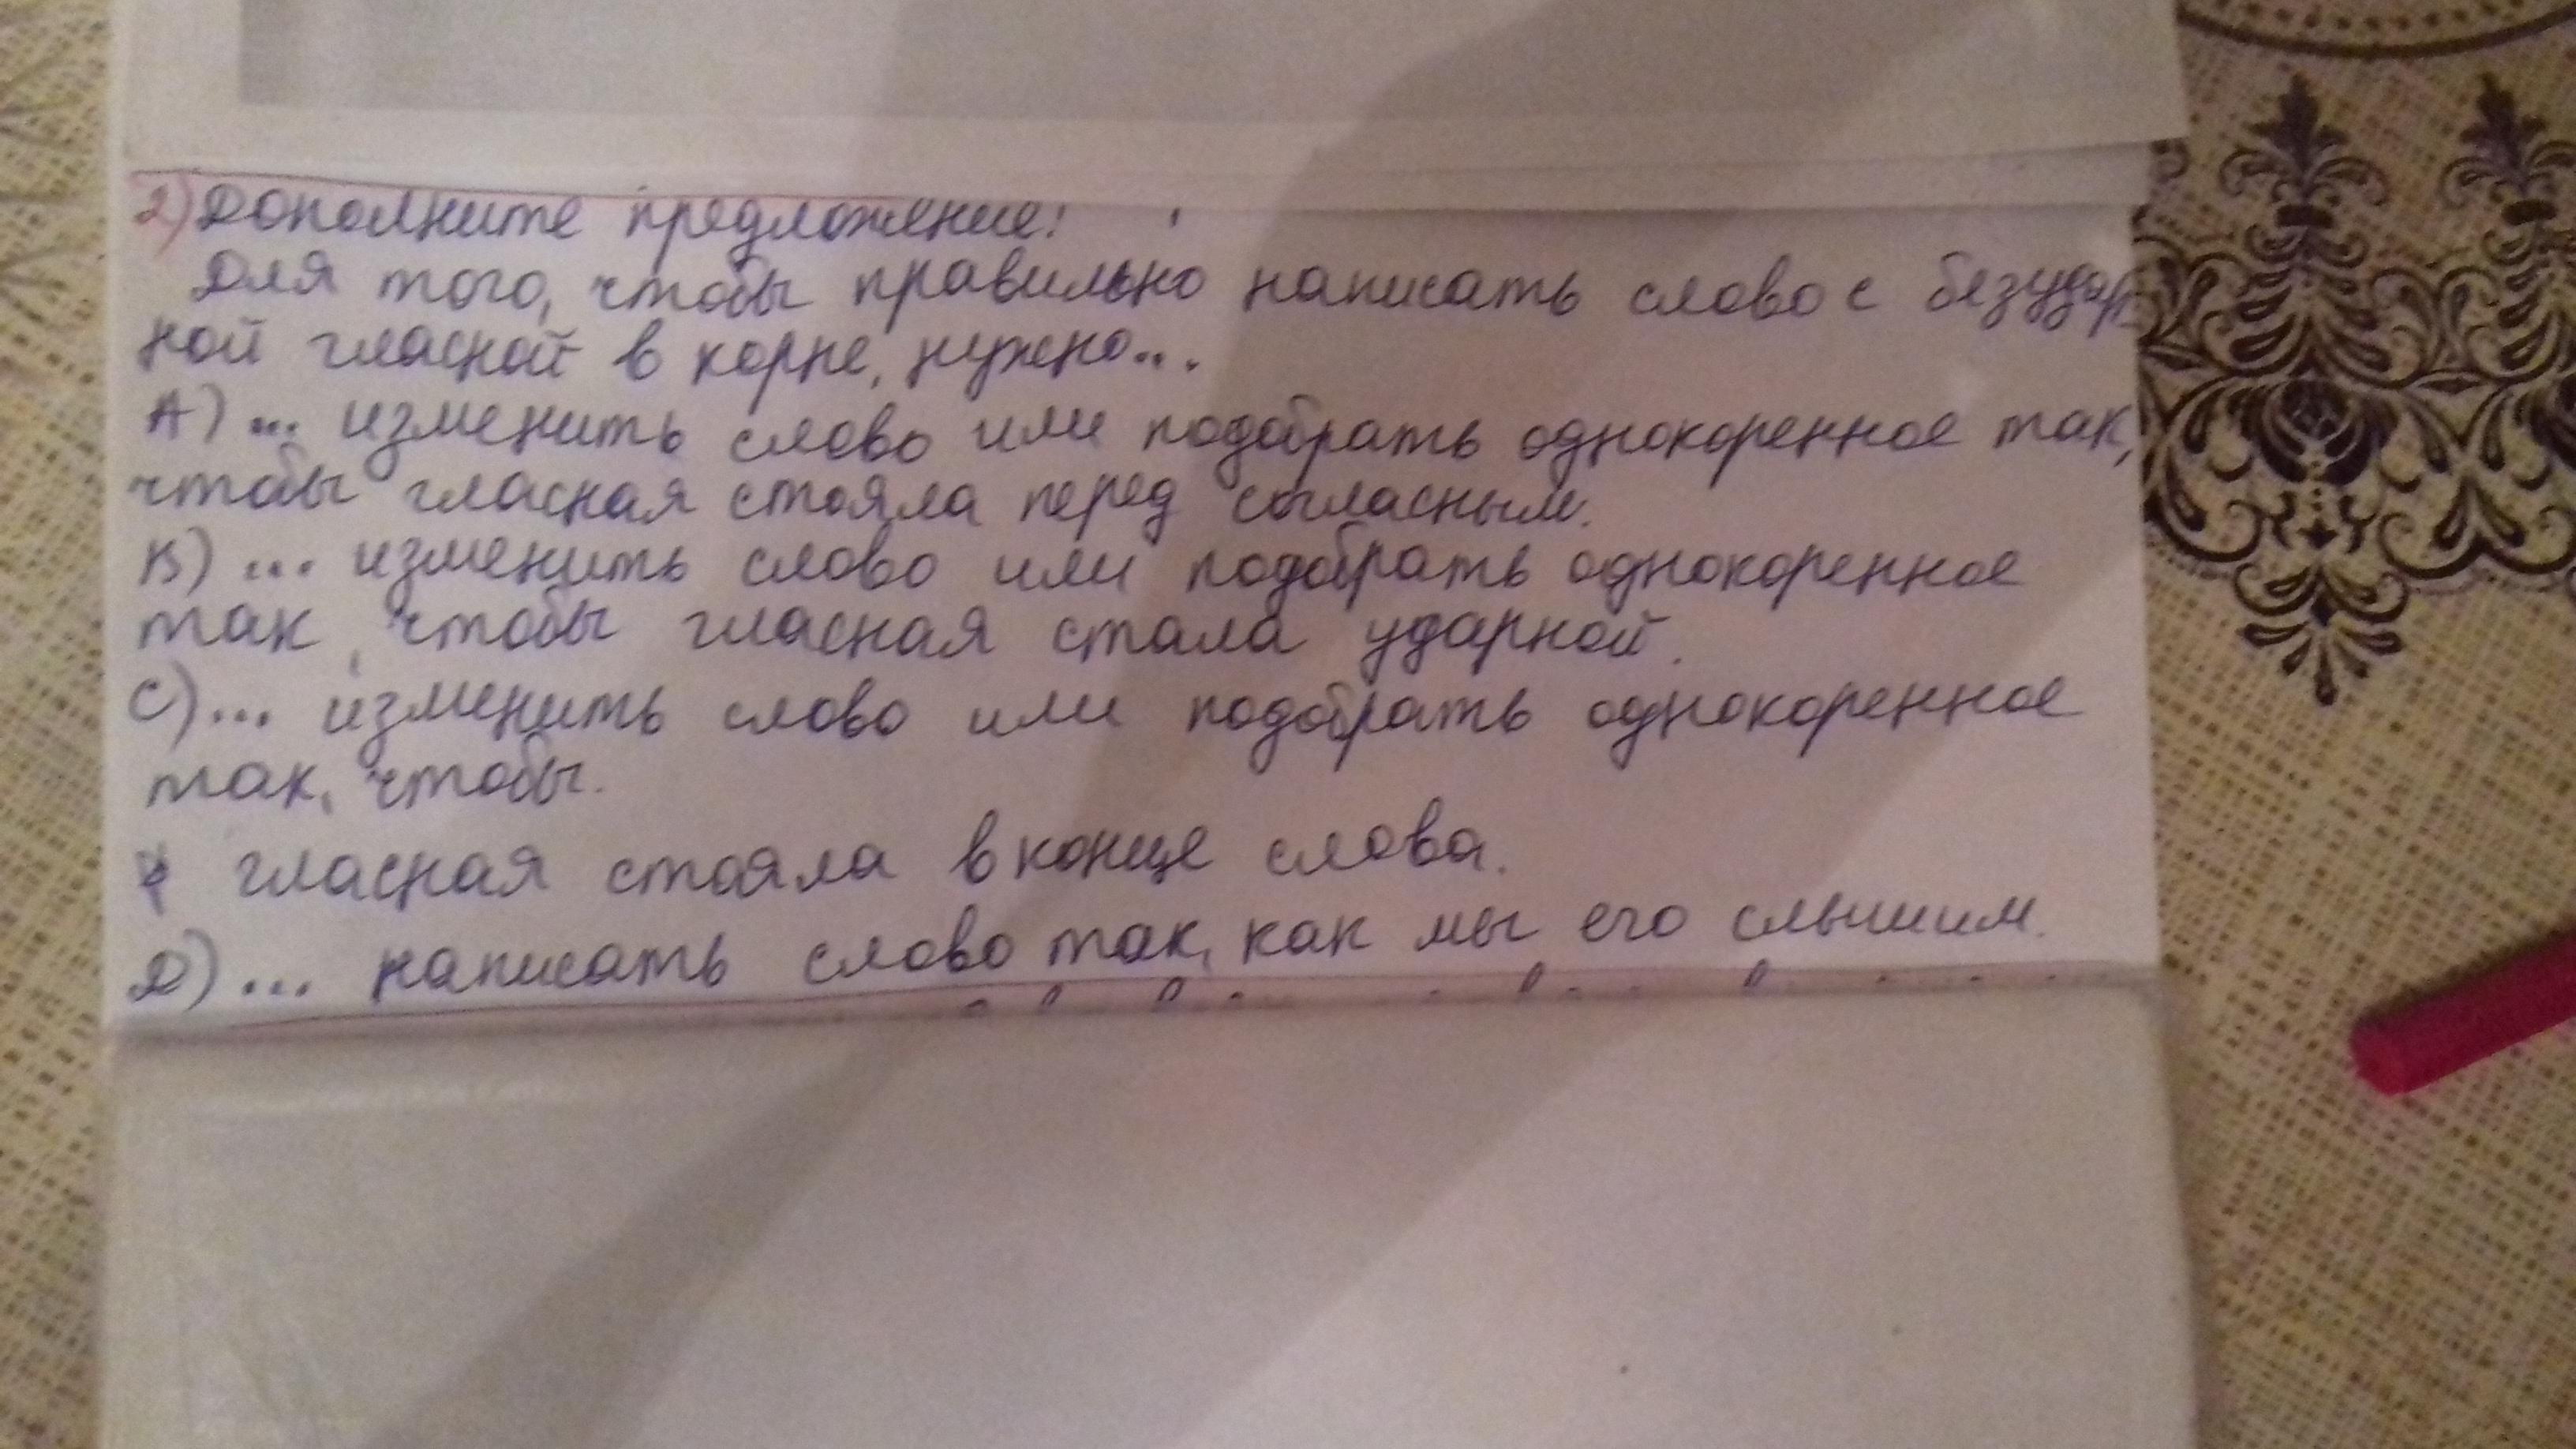 2) Дополните предложение!
Для того, чтобы правильно написать слово с безудар
ной гласной в корне, нужно...
А) ... изменить слово или подобрать однокоренное так,
чтобы гласная стояла перед согласным.
В) ... изменить слово или подобрать однокоренное
так, чтобы гласная стала ударной.
С) ... изменить слово или подобрать однокоренное
так, чтобы.
гласная стояла в конце слова.
Д) ... написать слово так, как мы его слышим.